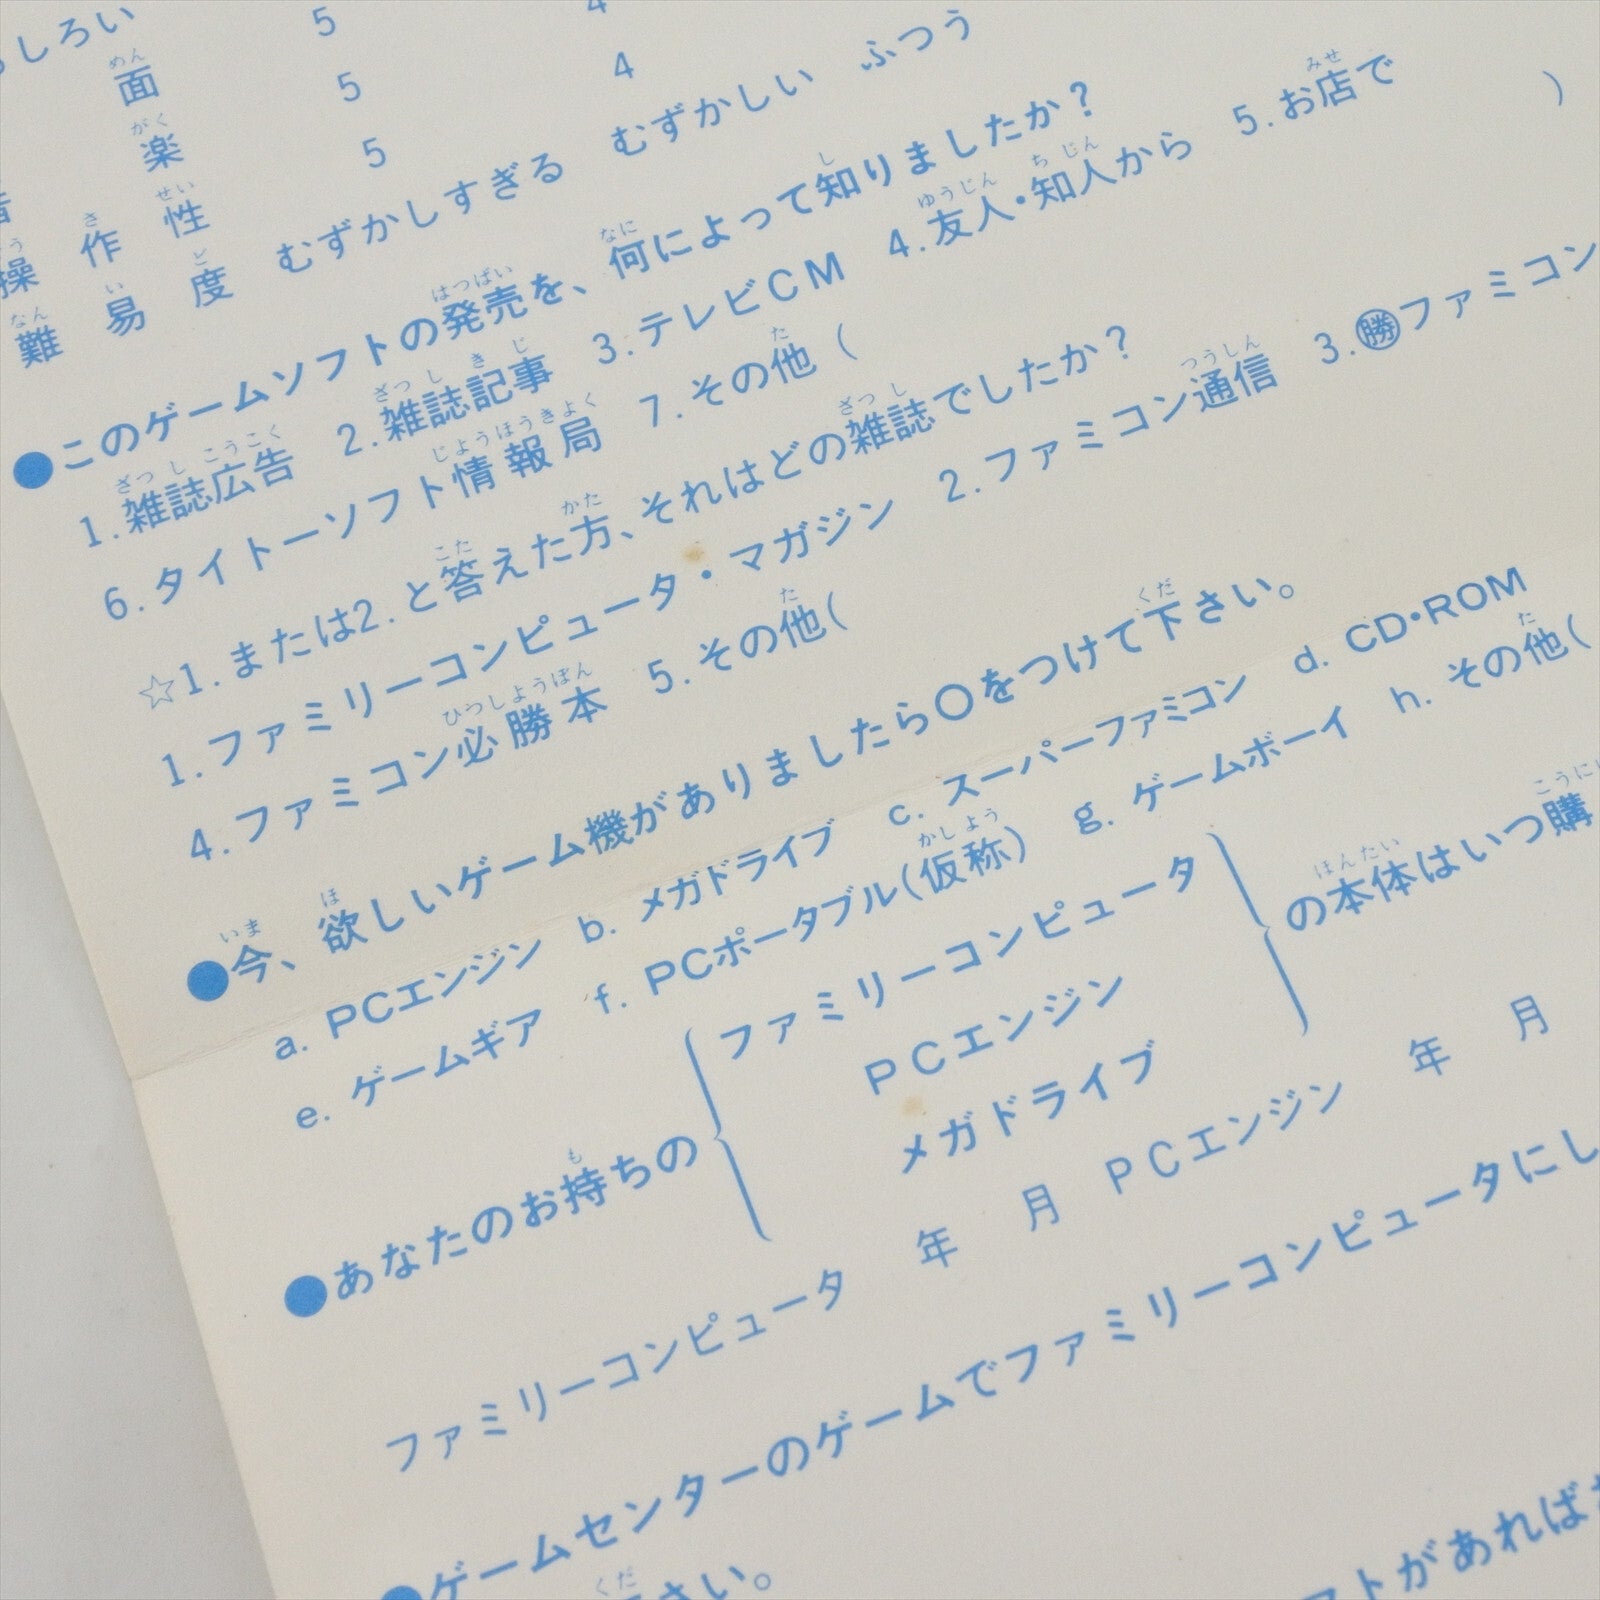 しろい 5 4
面 5 4
楽 5
操作性
難易度 むずかしすぎる むずかしい ふつう
●このゲームソフトの発売を、何によって知りましたか?
1.雑誌広告 2.雑誌記事 3.テレビCM 4.友人・知人から 5.お店で
6.タイトーソフト情報局 7.その他( )
☆1.または2.と答えた方、それはどの雑誌でしたか?
1.ファミリーコンピュータ・マガジン 2.ファミコン通信 3.㊝ファミコン
4.ファミコン必勝本 5.その他(
●今、欲しいゲーム機がありましたら○をつけて下さい。
a. PCエンジン b. メガドライブ c. スーパーファミコン d. CD・ROM
e. ゲームギア f. PCポータブル(仮称) g. ゲームボーイ h. その他(
●あなたのお持ちの
ファミリーコンピュータ
PCエンジン
メガドライブ
の本体はいつ購
ファミリーコンピュータ 年 月 PCエンジン 年 月
●ゲームセンターのゲームでファミリーコンピュータにし
さい。
フトがあれば